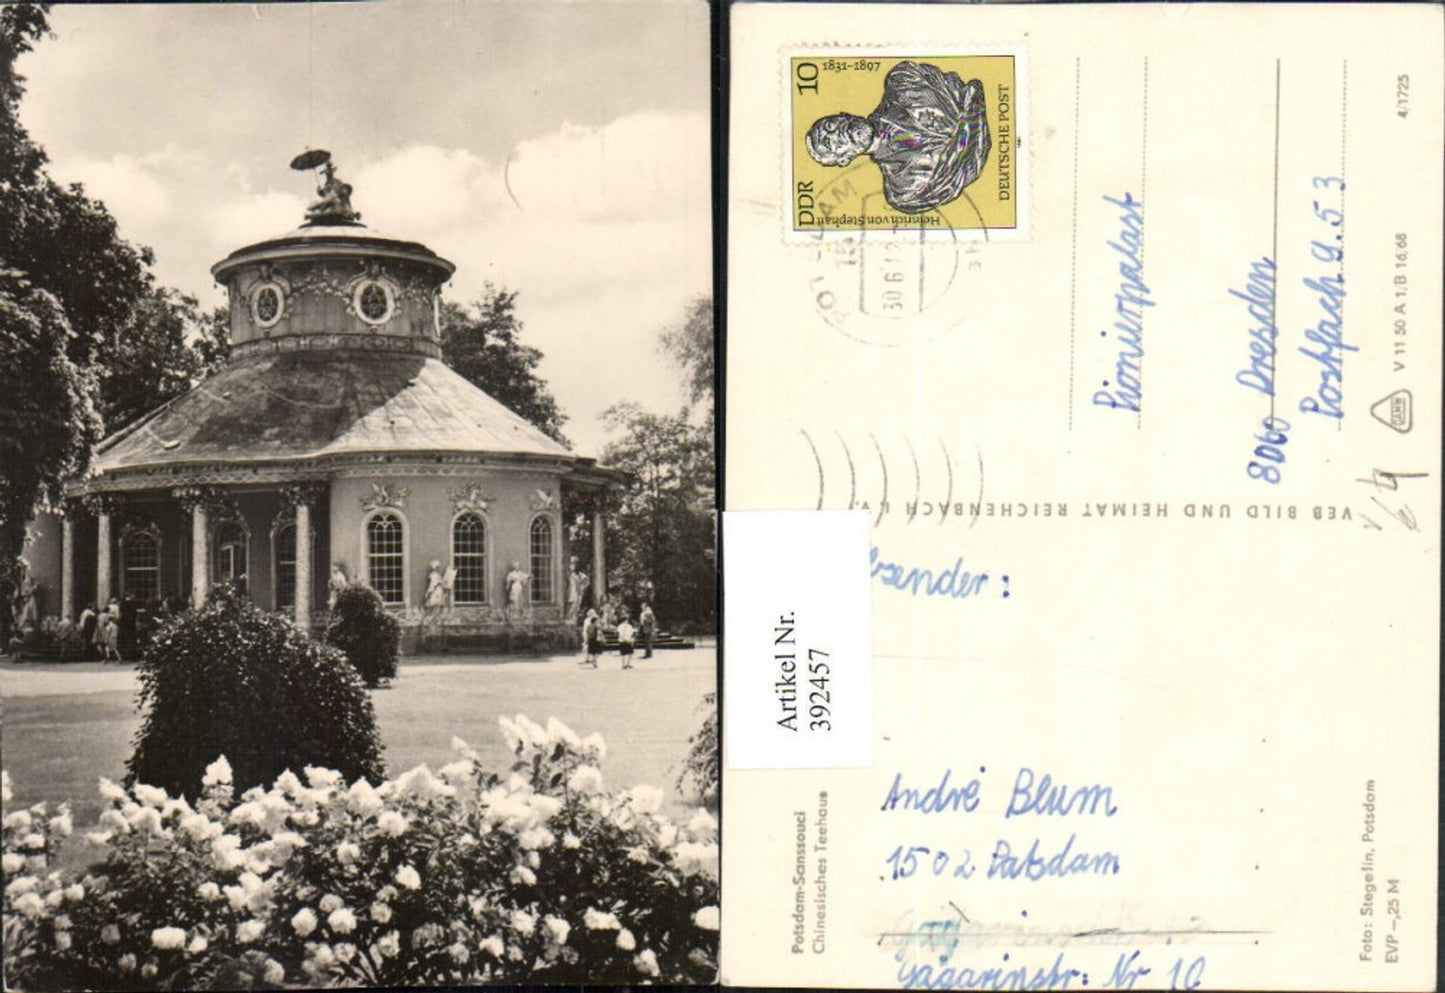 DDR
10
1831–1897
Heinrich von Stephan
DEUTSCHE POST
30.6.
Pionierpalast
8060 Dresden
Postfach 9.53
4/1725
V 11 50 A 1/B 16/68
VEB BILD UND HEIMAT REICHENBACH i. V.
Artikel Nr.
392457
bsender:
André Blum
1502 Potsdam
Gagarinstr. Nr 10
Potsdam-Sanssouci
Chinesisches Teehaus
Foto: Stegelin, Potsdam
EVP –,25 M